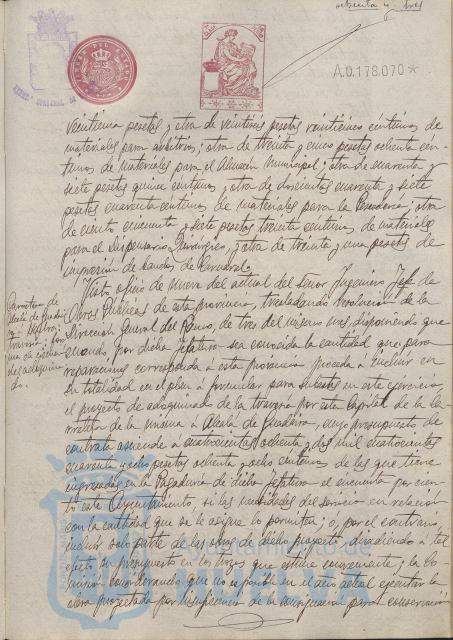 ochenta y tres
A.0.178.070*
veinticinco pesetas y otra de veintiseis pesetas veinticinco centimos de
materiales para arbitrios; otra de treinta y cinco pesetas ochenta cen-
timos de materiales para el Almacen Municipal; otra de cuarenta y
siete pesetas quince centimos; otra de doscientas cuarenta y siete
pesetas cuarenta centimos de materiales para la otra
de ciento cincuenta y siete pesetas treinta centimos, de materiales
para el Dispensario Quirúrgico, y otra de treinta y una pesetas de
impresión de bandos de Carnaval.
Carretera de
Alcalá de Guadai-
ra
do.
Visto oficio de nueve del actual del señor Ingeniero Jefe de
Obras Públicas de esta provincia, trasladando resolución de la
Dirección General del Ramo, de tres del mismo mes, disponiendo que
cuando, por dicha Jefatura sea conocida la cantidad que para
reparaciones corresponda a esta provincia proceda a incluir en
su totalidad en el plan a formular para subasta en este ejercicio,
el proyecto de adoquinado de la travesia por esta Capital de la Ca-
rretera de la misma a Alcalá de Guadaira, cuyo presupuesto de
contrata asciende a cuatrocientas ochenta y dos mil cuatrocientas
cuarenta y ocho pesetas ochenta y ocho centimos de las que tiene
ingresadas en la Pagaduria de dicha Jefatura el cincuenta por cien-
to este Ayuntamiento, si las necesidades del servicio en relación
con la cantidad que se le asigne lo permiten; o, por el contrario,
incluir solo parte de las obras de dicho proyecto, dividiendo a tal
efecto su presupuesto en los trozos que estime conveniente; y la Co-
misión considerando que no es posible en el año actual ejecutar la
obra proyectada por insuficiencia de la consignación para conservación
Ayuntamiento de
HUELVA